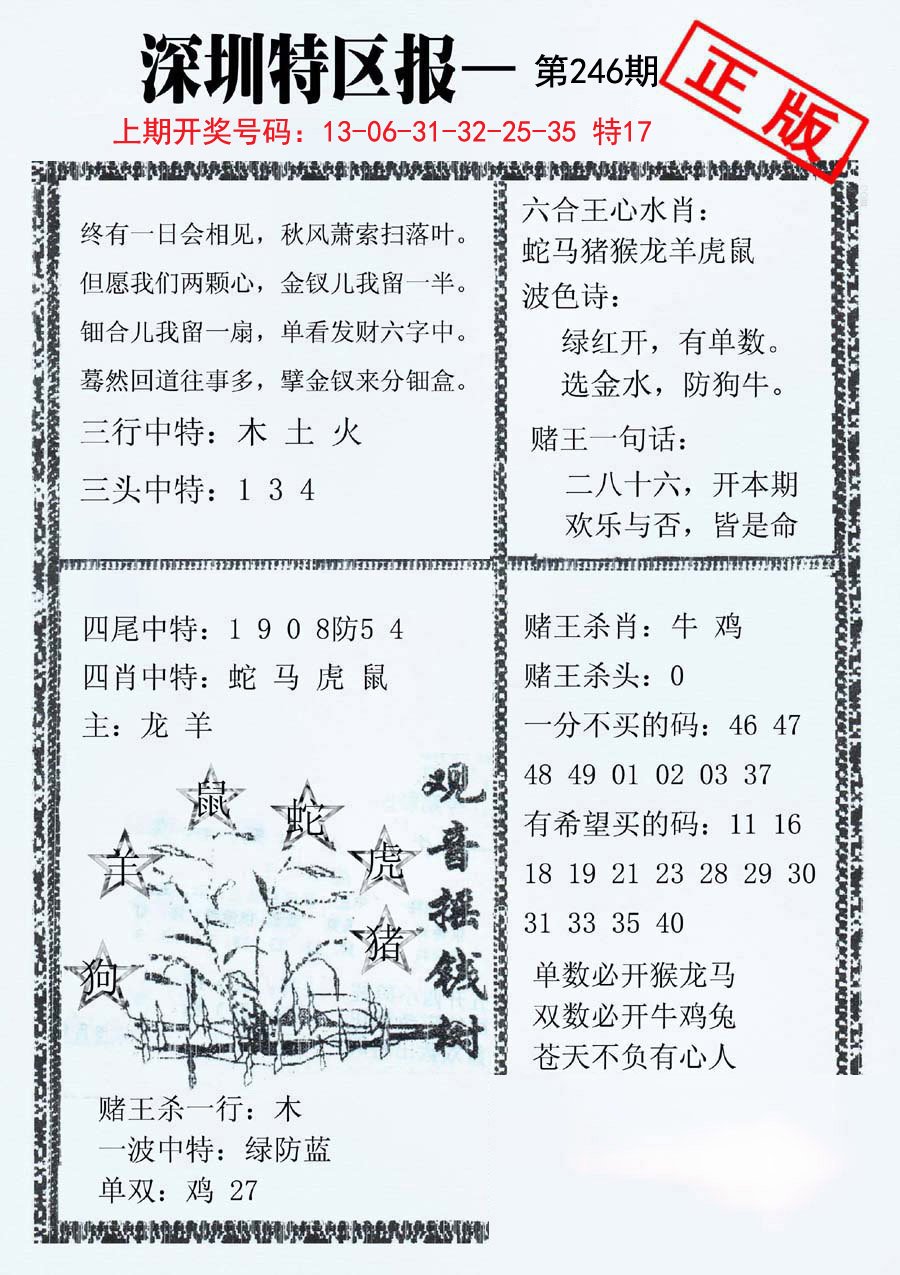 深圳特区报一 第246期
正版
上期开奖号码：13-06-31-32-25-35 特17
终有一日会相见，秋风萧索扫落叶。
但愿我们两颗心，金钗儿我留一半。
钿合儿我留一扇，单看发财六字中。
蓦然回道往事多，擘金钗来分钿盒。
三行中特：木 土 火
三头中特：1 3 4
六合王心水肖：
蛇马猪猴龙羊虎鼠
波色诗：
绿红开，有单数。
选金水，防狗牛。
赌王一句话：
二八十六，开本期
欢乐与否，皆是命
四尾中特：1 9 0 8防5 4
四肖中特：蛇 马 虎 鼠
主：龙 羊
鼠
蛇
羊
虎
猪
狗
观音摇钱树
赌王杀一行：木
一波中特：绿防蓝
单双：鸡 27
赌王杀肖：牛 鸡
赌王杀头：0
一分不买的码：46 47
48 49 01 02 03 37
有希望买的码：11 16
18 19 21 23 28 29 30
31 33 35 40
单数必开猴龙马
双数必开牛鸡兔
苍天不负有心人